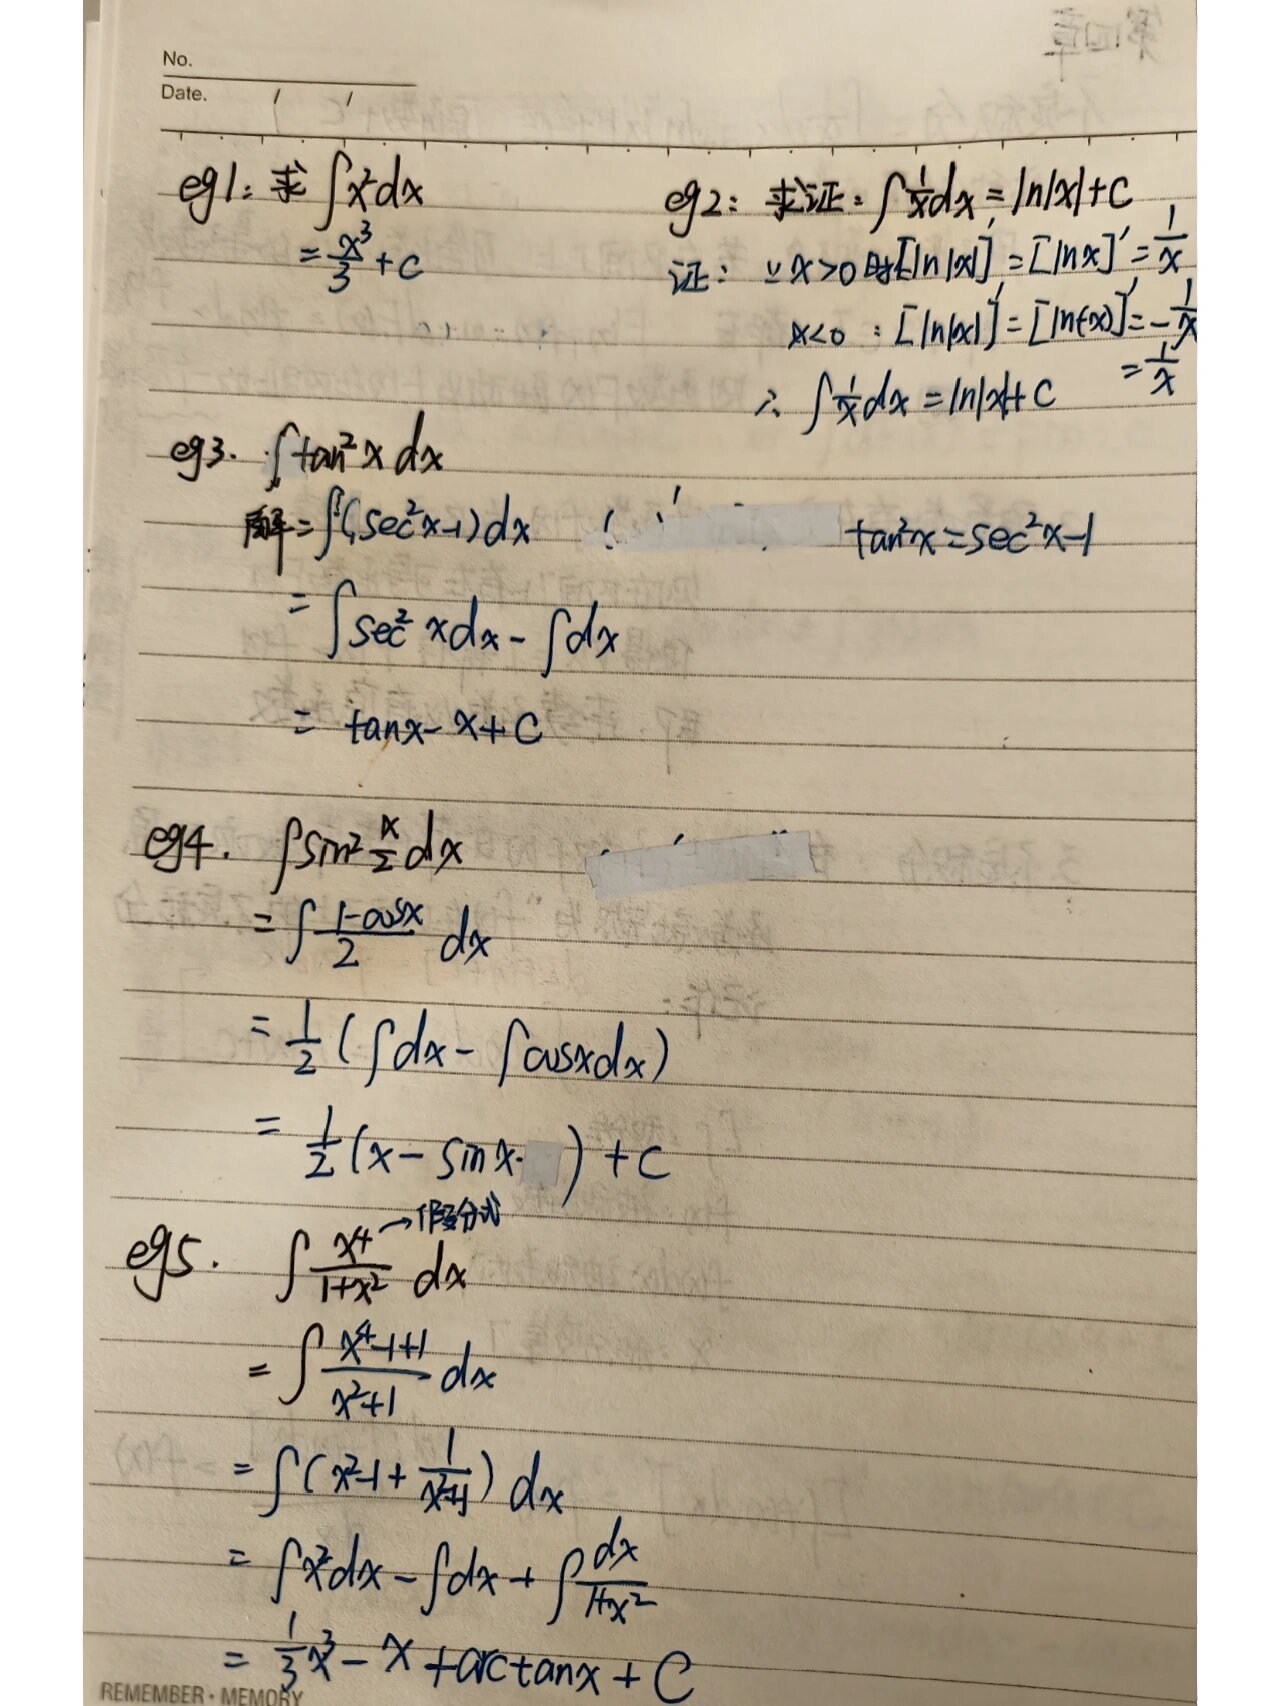 No.
Date. / /
eg1: 求 ∫x²dx
= x³/3 + C
eg2: 求证: ∫1/x dx = ln|x| + C
证: ∵ x>0时[ln|x|]' = [lnx]' = 1/x
x<0 : [ln|x|]' = [ln(-x)]' = -1/-x
= 1/x
∴ ∫1/x dx = ln|x| + C
eg3. ∫tan²x dx
解 = ∫(sec²x-1)dx tan²x = sec²x-1
= ∫sec²xdx - ∫dx
= tanx - x + C
eg4. ∫sin² x/2 dx
= ∫ (1-cosx)/2 dx
= 1/2 (∫dx - ∫cosxdx)
= 1/2 (x - sinx ) + C
eg5. ∫ x⁴/(1+x²) dx →假分式
= ∫ (x⁴-1+1)/(x²+1) dx
= ∫(x²-1 + 1/(x²+1)) dx
= ∫x²dx - ∫dx + ∫ dx/(1+x²)
= 1/3 x³ - x + arctanx + C
REMEMBER · MEMORY